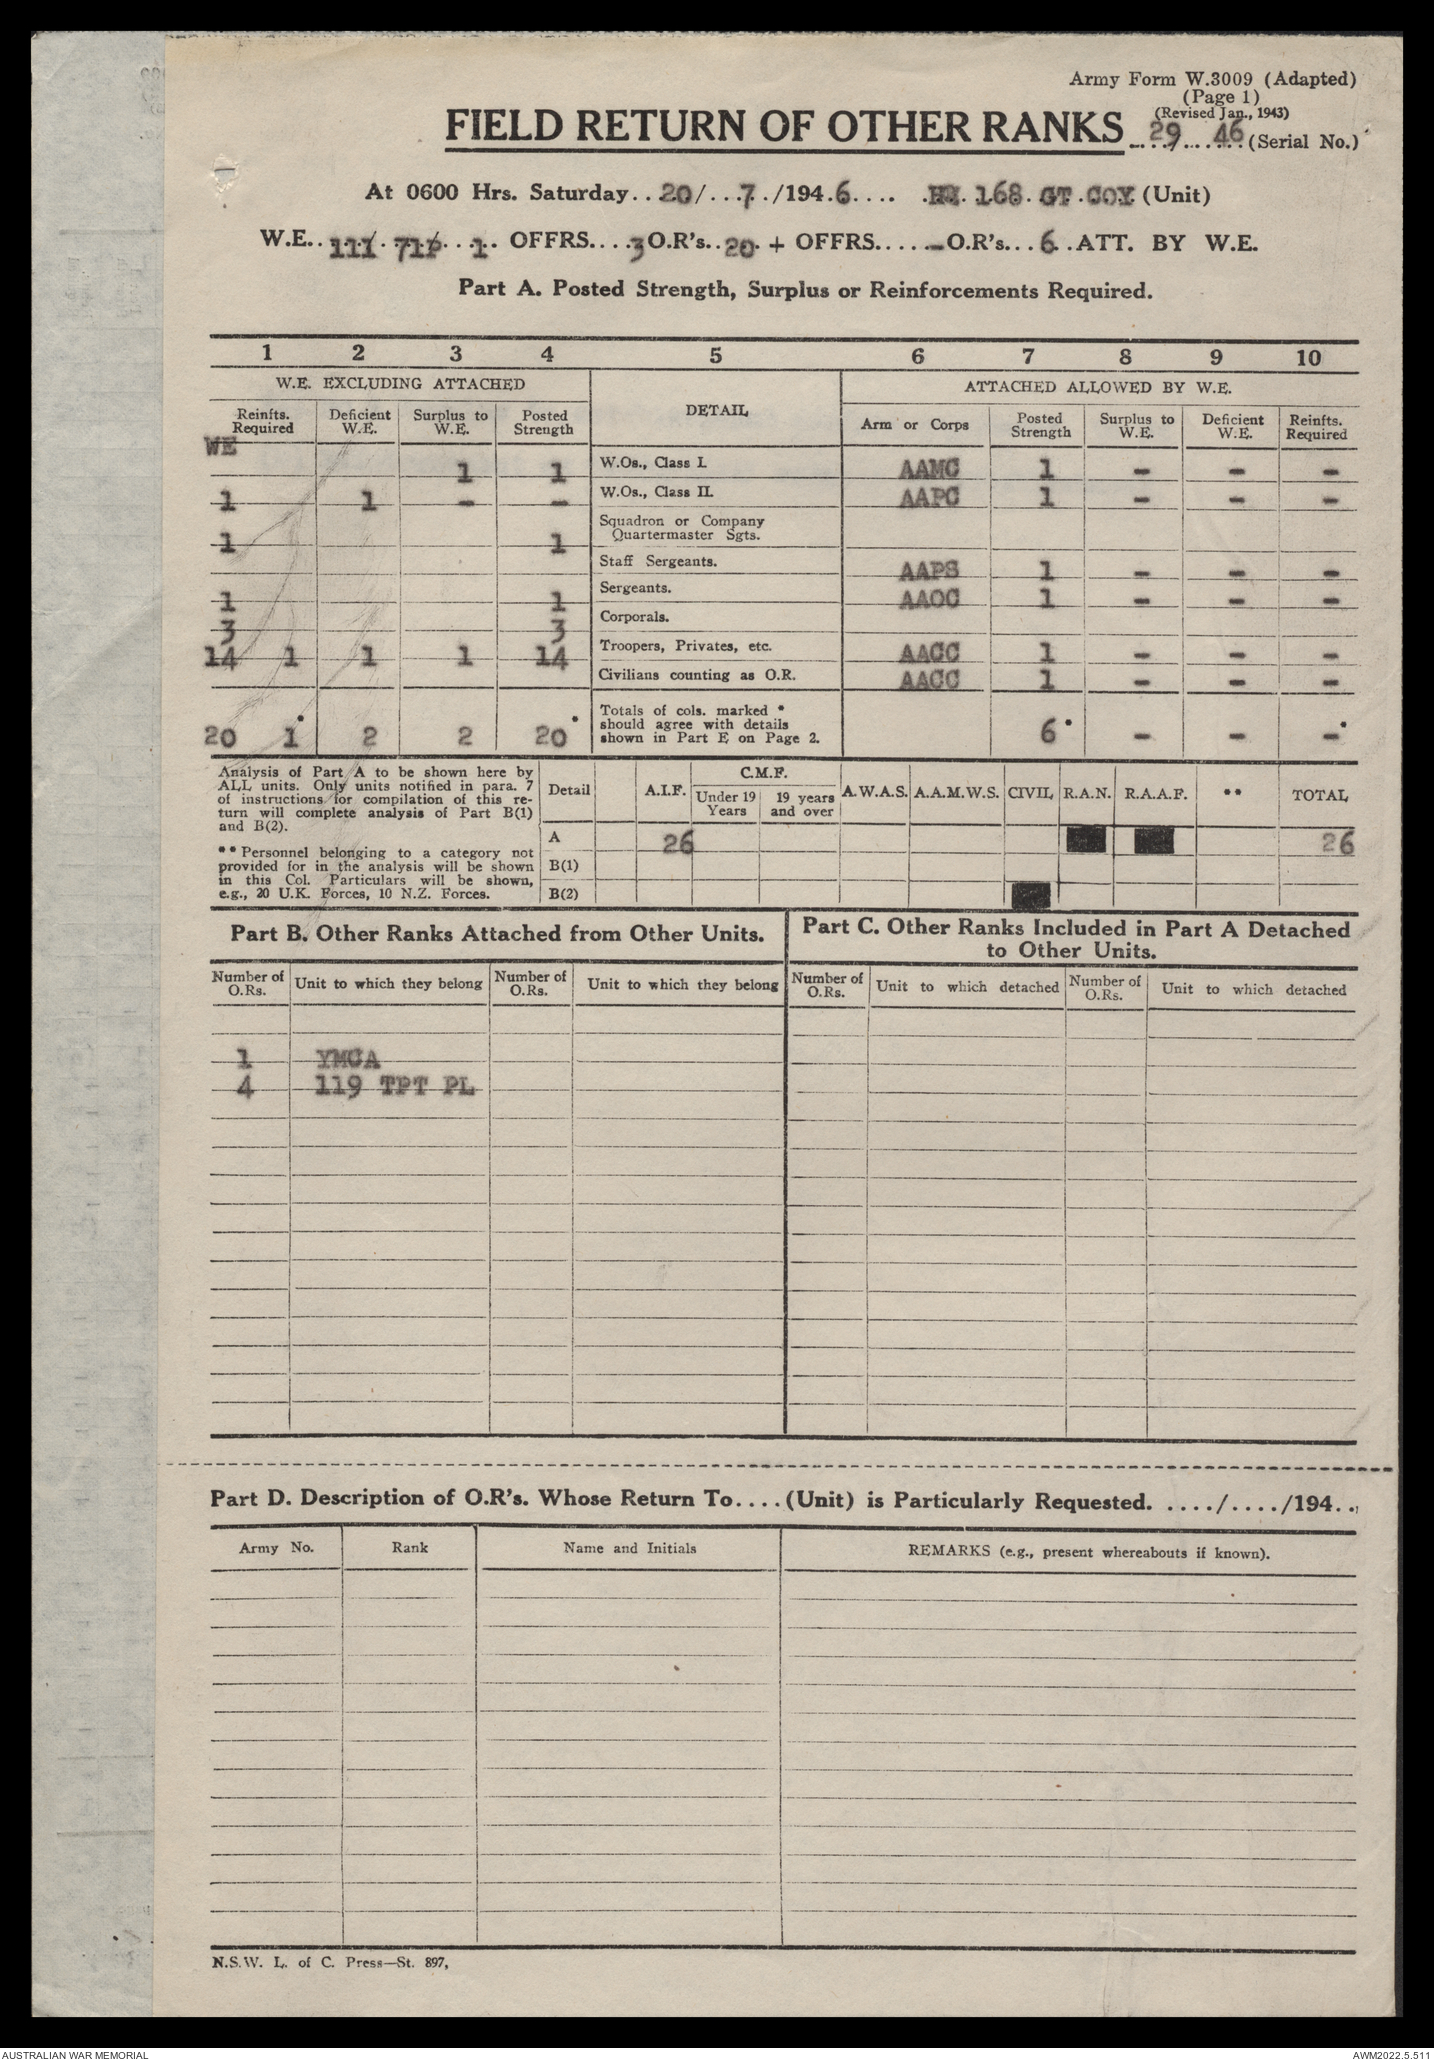 Army Form W.3009 (Adapted)
(Page 1)
(Revised Jan., 1943)
FIELD RETURN OF OTHER RANKS ...29./...46 (Serial No.)
At 0600 Hrs. Saturday..20/...7./194.6.... .HQ. 168 GT COY (Unit)
W.E..111/. 71/. . 1.. OFFRS....3 O.R's..20. + OFFRS.....- O.R's...6..ATT. BY W.E.
Part A. Posted Strength, Surplus or Reinforcements Required.
1 2 3 4 5 6 7 8 9 10
W.E. EXCLUDING ATTACHED DETAIL ATTACHED ALLOWED BY W.E.
Reinfts. Required Deficient W.E. Surplus to W.E. Posted Strength Arm or Corps Posted Strength Surplus to W.E. Deficient W.E. Reinfts. Required
WE
1 1 W.Os., Class I. AAMC 1 - - -
1 1 - - W.Os., Class II. AAPC 1 - - -
1 1 Squadron or Company Quartermaster Sgts.
Staff Sergeants. AAPS 1 - - -
1 1 Sergeants. AAOC 1 - - -
3 3 Corporals.
14 1 1 1 14 Troopers, Privates, etc. AACC 1 - - -
Civilians counting as O.R. AACC 1 - - -
20 1* 2 2 20* Totals of cols. marked * should agree with details shown in Part E on Page 2. 6* - - -*
Analysis of Part A to be shown here by
ALL units. Only units notified in para. 7
of instructions for compilation of this re-
turn will complete analysis of Part B(1)
and B(2).
** Personnel belonging to a category not
provided for in the analysis will be shown
in this Col. Particulars will be shown,
e.g., 20 U.K. Forces, 10 N.Z. Forces.
Detail A.I.F. C.M.F. Under 19 Years 19 years and over A.W.A.S. A.A.M.W.S. CIVIL R.A.N. R.A.A.F. ** TOTAL
A 26 26
B(1)
B(2)
Part B. Other Ranks Attached from Other Units.
Number of O.Rs. Unit to which they belong Number of O.Rs. Unit to which they belong
1 YMCA
4 119 TPT PL
Part C. Other Ranks Included in Part A Detached
to Other Units.
Number of O.Rs. Unit to which detached Number of O.Rs. Unit to which detached
Part D. Description of O.R's. Whose Return To....(Unit) is Particularly Requested. ..../..../194..
Army No. Rank Name and Initials REMARKS (e.g., present whereabouts if known).
N.S.W. L. of C. Press—St. 897,
AUSTRALIAN WAR MEMORIAL
AWM2022.5.511